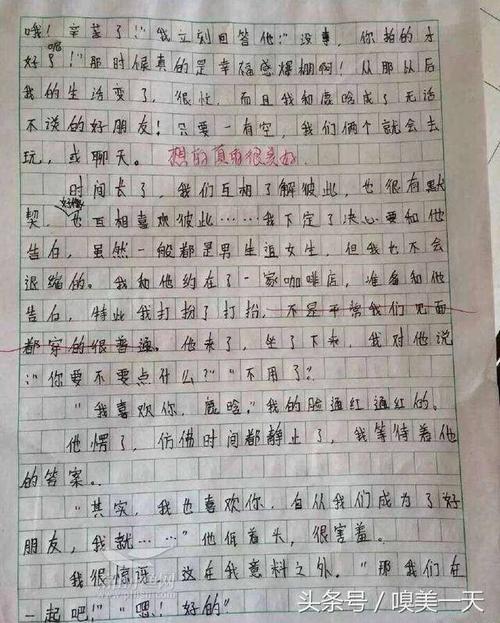 哦！辛苦了！"我立刻回答他："没事，你拍的才
好了呢！"那时候真的是幸福感爆棚啊！从那以后
我的生活变了，很忙，而且我和鹿晗成了无话
不说的好朋友！只要一有空，我们俩个就会去
玩，或聊天。想的真的很美好
时间长了，我们互相了解彼此，也很有默
契，好像也互相喜欢彼此……我下定了决心要和他
告白，虽然一般都是男生追女生，但我也不会
退缩的。我和他约在了一家咖啡店，准备和他
告白，特此我打扮了打扮，不是平常我们见面
都穿的很普通。他来了，坐了下来，我对他说
："你要不要点什么？""不用了"。
"我喜欢你，鹿晗。"我的脸通红通红的。
他愣了，仿佛时间都静止了，我等待着他
的答案。
"其实，我也喜欢你，自从我们成为了好
朋友，我就……"他低着头，很害羞。
我很惊讶，这在我意料之外。"那我们在
一起吧！""嗯！好的"
头条号/嗅美一天